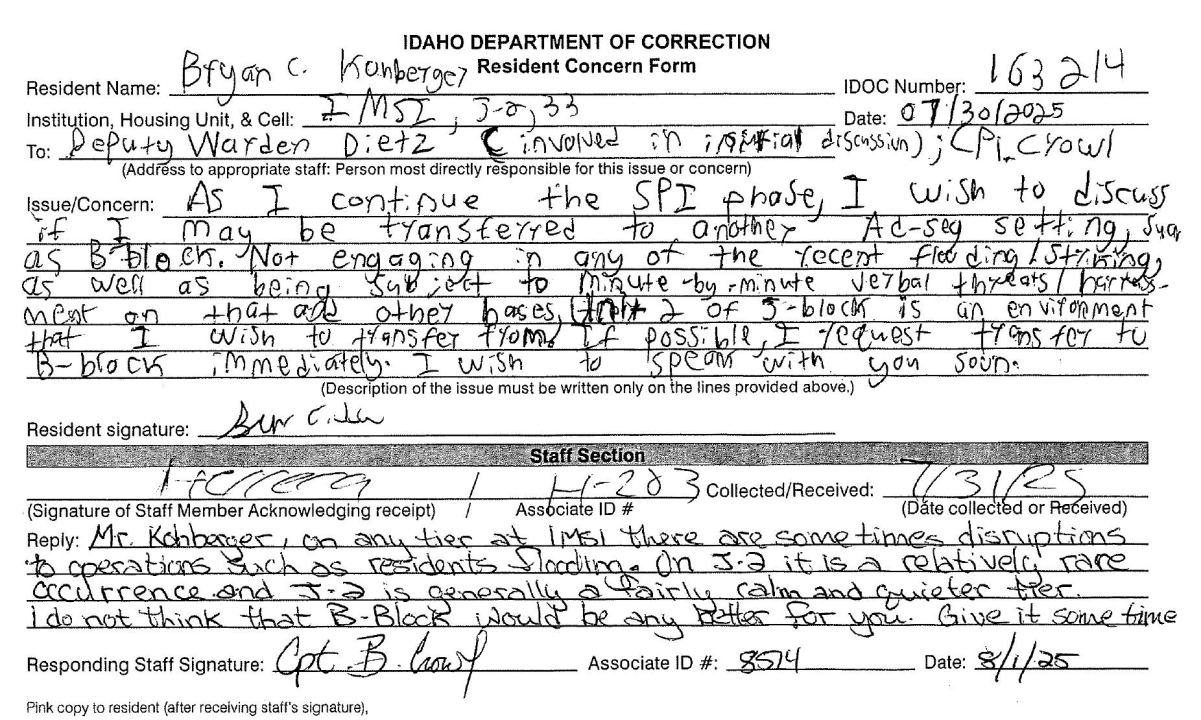 IDAHO DEPARTMENT OF CORRECTION
Resident Concern Form
Resident Name: Bryan C. Kohberger IDOC Number: 163214
Institution, Housing Unit, & Cell: IMSI, J-2, 33 Date: 07/30/2025
To: Deputy Warden Dietz (involved in initial discussion); Cpt. Crowl
(Address to appropriate staff: Person most directly responsible for this issue or concern)
Issue/Concern: As I continue the SPI phase, I wish to discuss
if I may be transferred to another Ad-seg setting, such
as B-block. Not engaging in any of the recent flooding/striking,
as well as being subject to minute-by-minute verbal threats/harrass-
ment on that and other bases, Unit 2 of J-block is an environment
that I wish to transfer from. If possible, I request transfer to
B-block immediately. I wish to speak with you soon.
(Description of the issue must be written only on the lines provided above.)
Resident signature:
Staff Section
/ H-203 Collected/Received: 7/31/25
(Signature of Staff Member Acknowledging receipt) / Associate ID # (Date collected or Received)
Reply: Mr. Kohberger, on any tier at IMSI there are sometimes disruptions
to operations such as residents flooding. On J-2 it is a relatively rare
occurrence and J-2 is generally a fairly calm and quieter tier.
I do not think that B-Block would be any better for you. Give it some time
Responding Staff Signature: Cpt B. Crowl Associate ID #: 8514 Date: 8/1/25
Pink copy to resident (after receiving staff's signature),